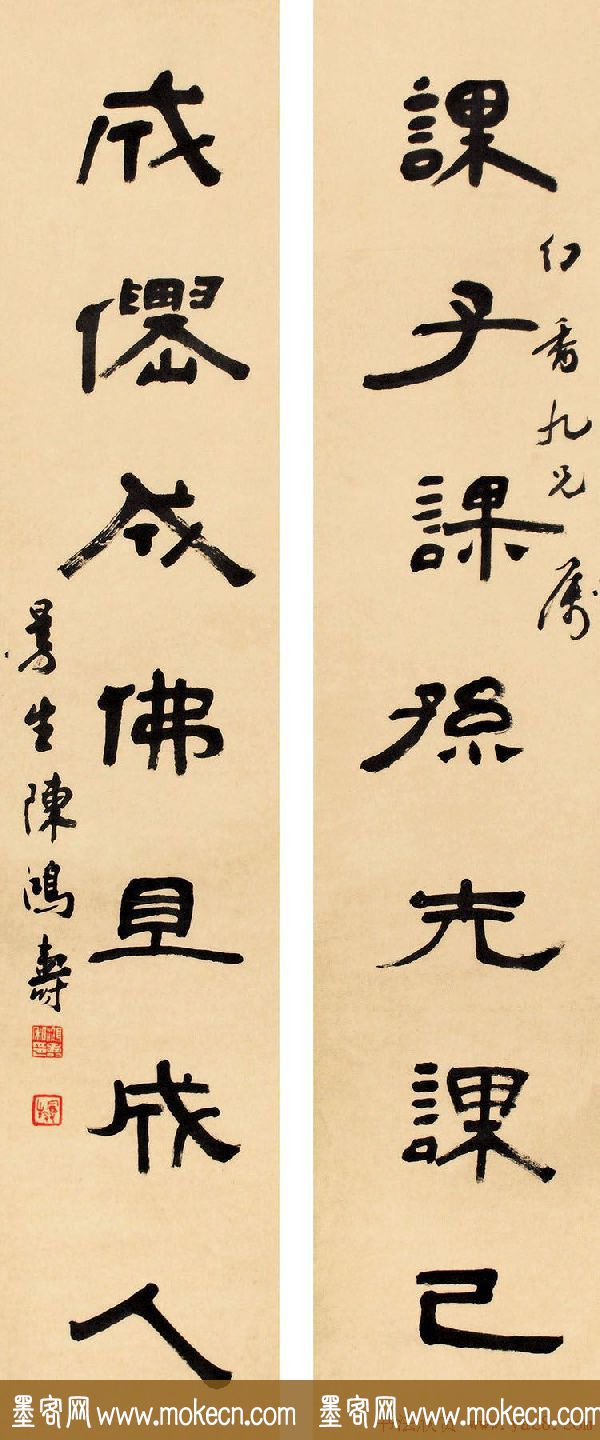 課子課孫先課己
幻香九兄屬
成僊成佛且成人
曼生陳鴻壽
墨客网www.mokecn.com
墨客网www.mokecn.com